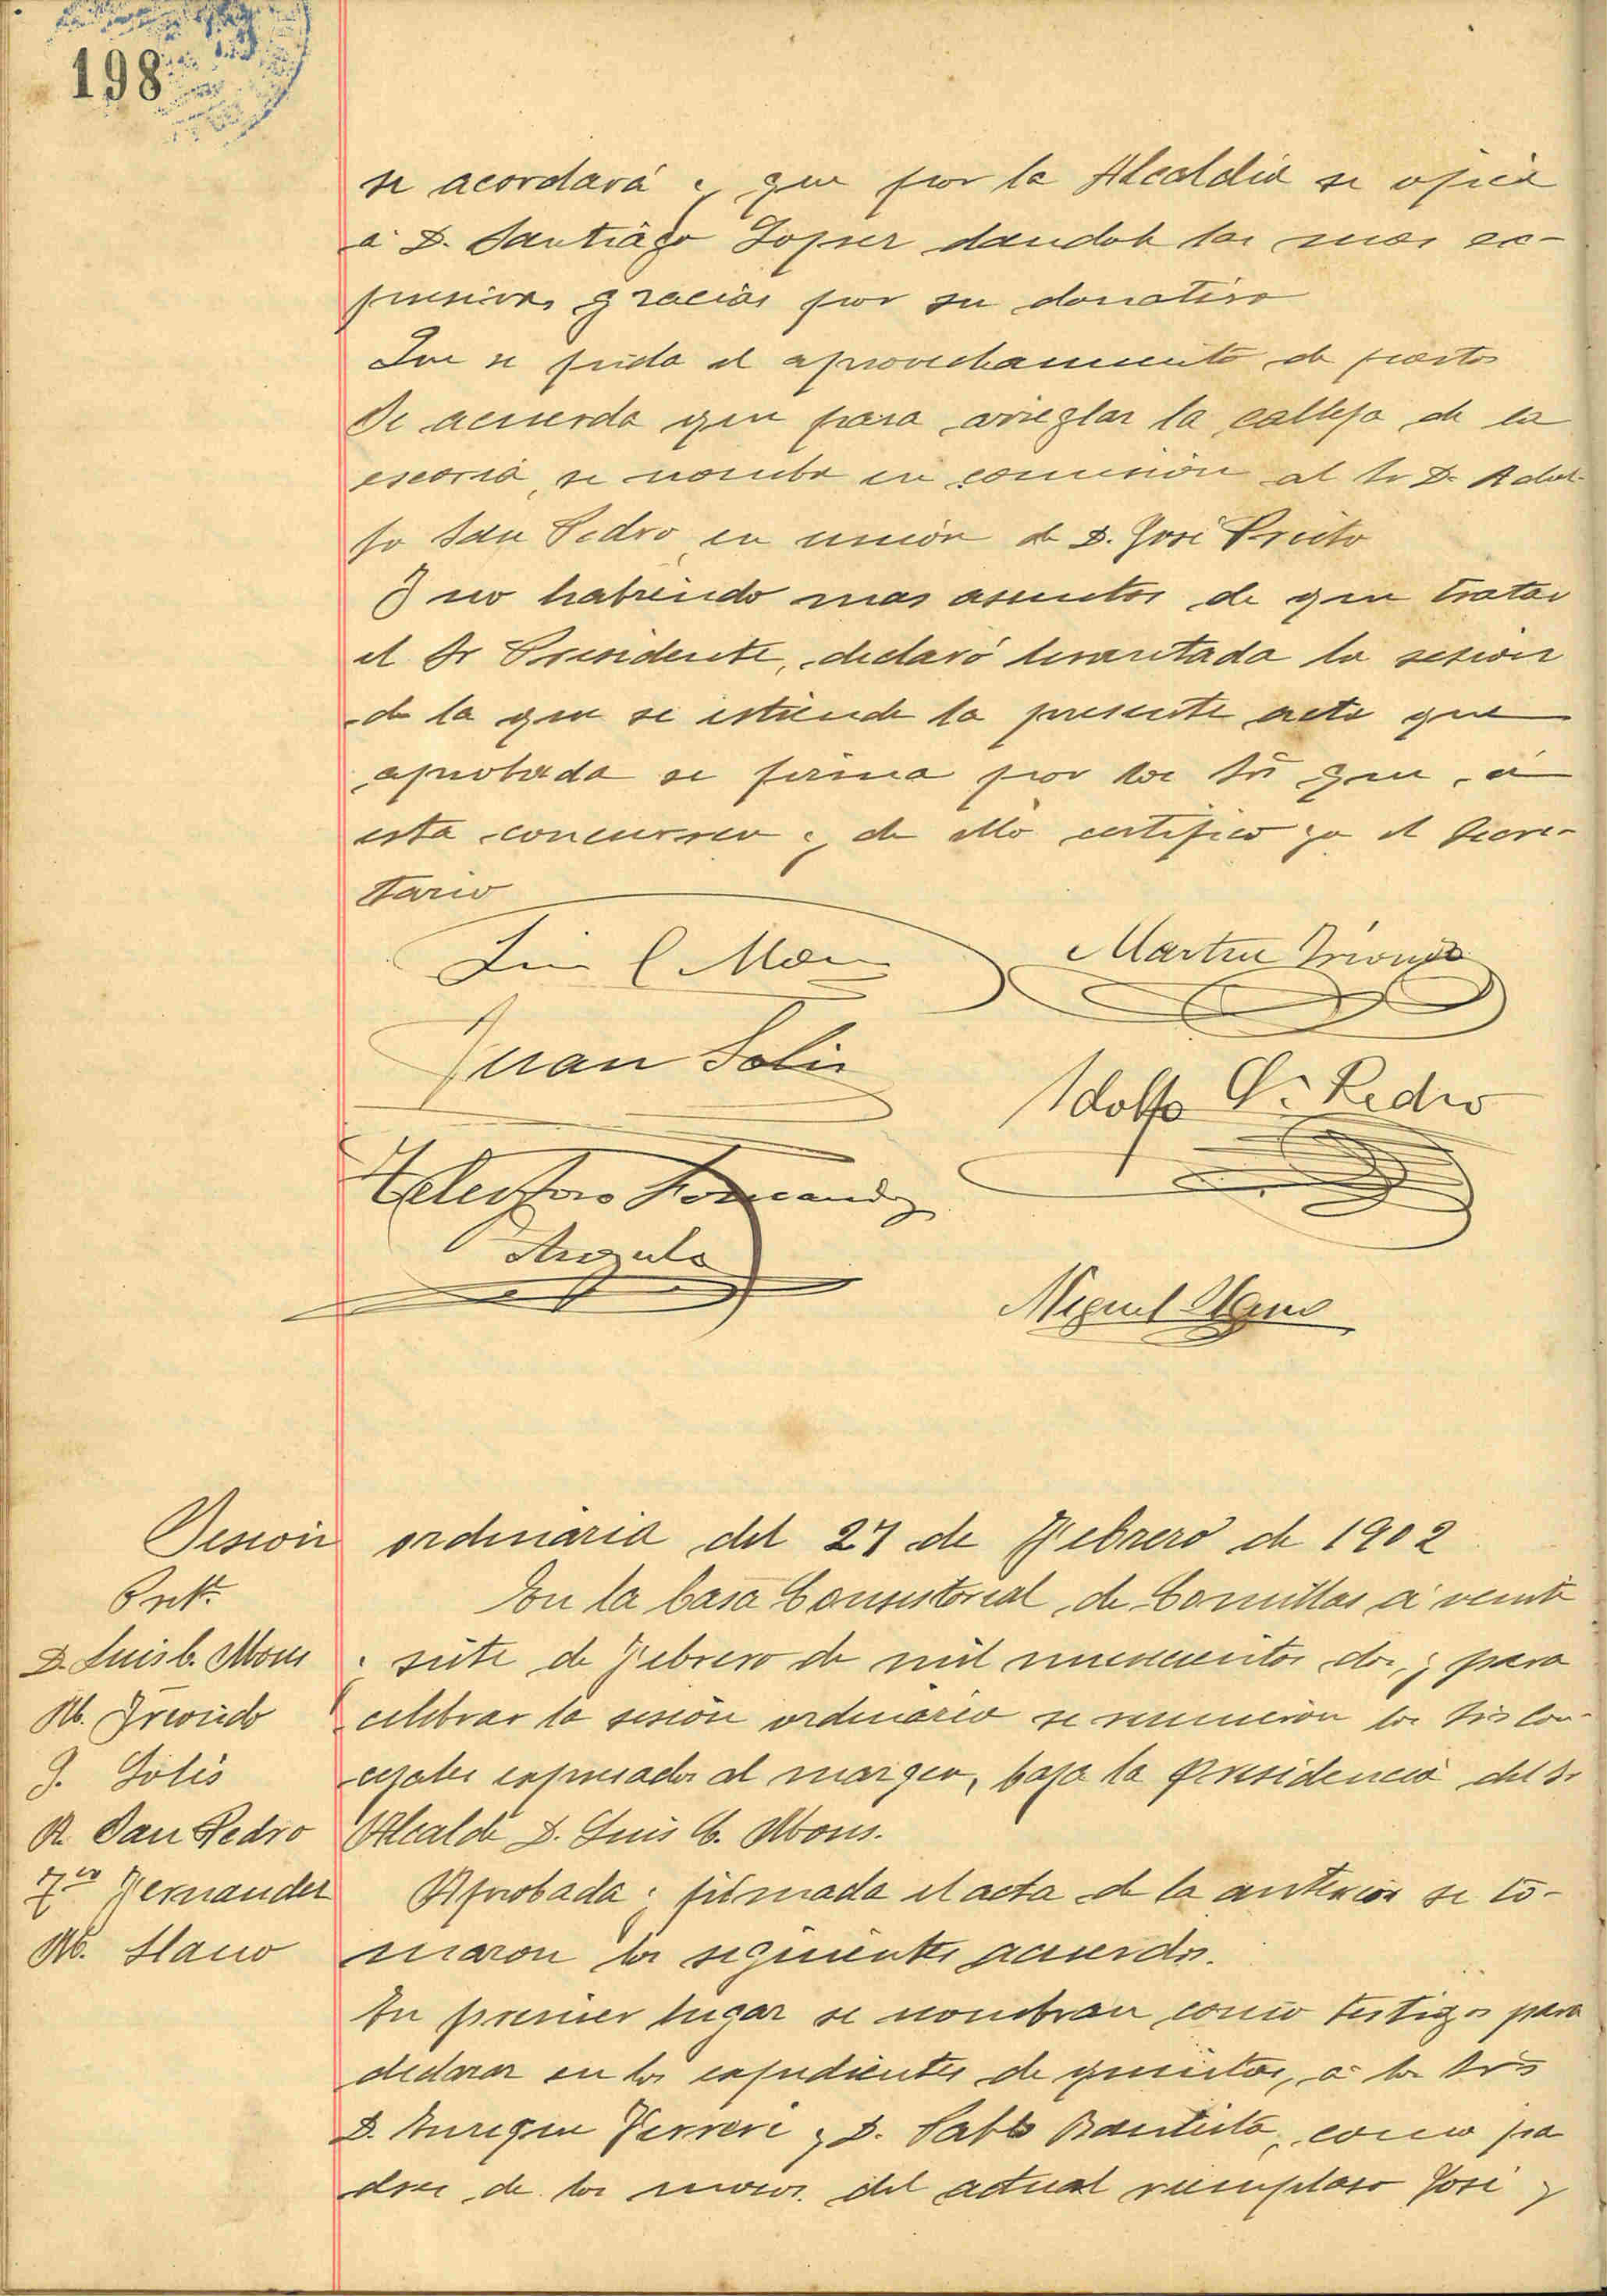 198
se acordará y que por la Alcaldia se oficie
á D. Santiago Lopez dandole las mas ex-
presivas gracias por su donativo
Que se pida el aprovechamiento de pastos
Se acuerda que para arreglar la calleja de la
escoria, se nombra en comisión al Sr D. Adol-
fo San Pedro, en unión de D. José Prieto
Y no habiendo mas asuntos de que tratar
el Sr Presidente, declaró levantada la sesion
de la que se estiende la presente acta que
aprobada se firma por los Srs que á
esta concurren y de ello certifico yo el Secre-
tario
Luis C Mons Martin Iriondo
Juan Solis Adolfo Sn Pedro
Telesforo Fernandez
Angulo
Miguel Llano
Sesion ordinaria del 27 de Febrero de 1902
Pnte
D. Luis C. Mons
M. Iriondo
J. Solis
A. San Pedro
Tro Fernandez
M. Llano
En la Casa Consistorial de Comillas á veinte
y siete de Febrero de mil nuevecientos dos, y para
celebrar la sesión ordinaria se reunieron los Srs Con-
cejales expresados al margen, bajo la Presidencia del Sr
Alcalde D. Luis C. Mons.
Aprobada y firmada el acta de la anterior se to-
maron los siguientes acuerdos.
En primer lugar se nombran como testigos para
declarar en los expedientes de quintos, á los Srs
D. Enrique Ferreri y D. Pablo Bautista, como pa
dres de los mozos del actual reemplaso José y